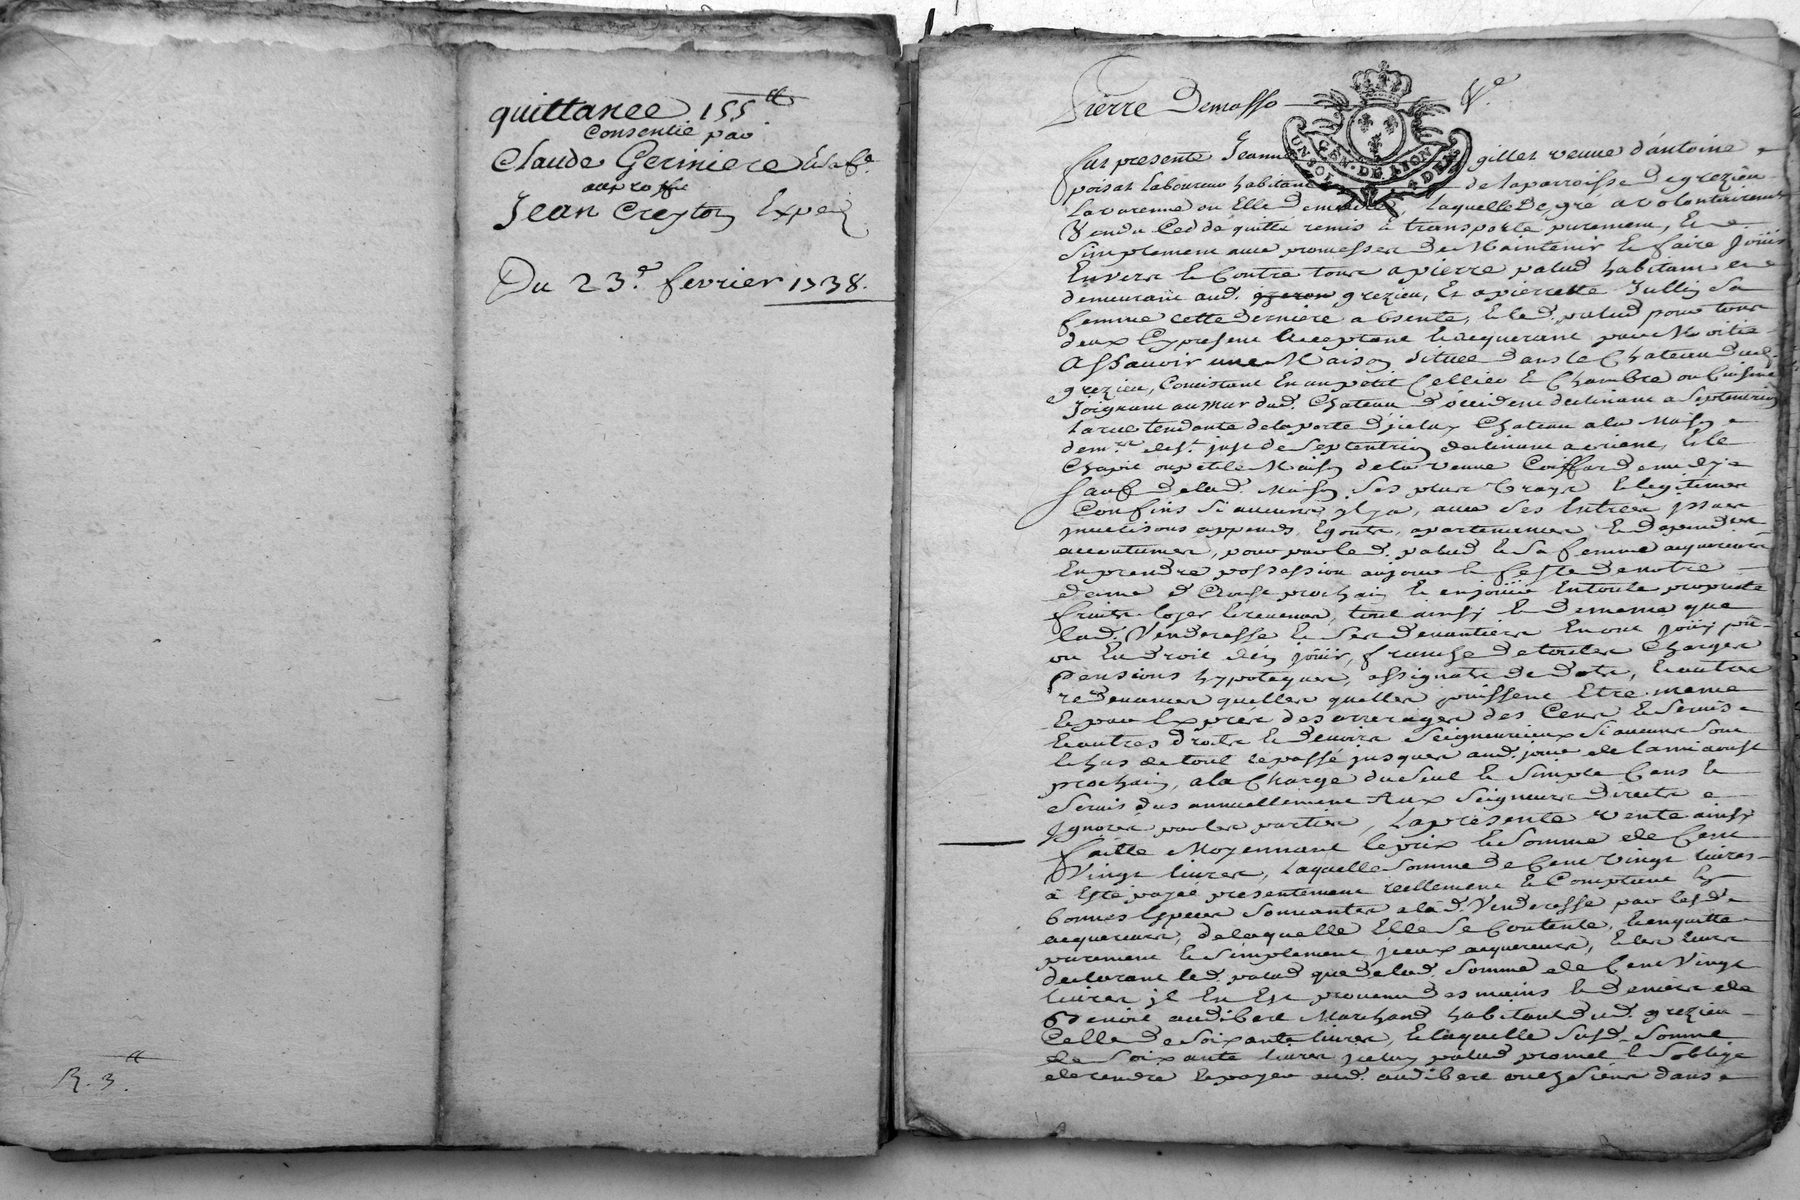 quittance 155 ₶
Consentie par
Claude Geriniere & sa fe.
au proffit
Jean Creyton Exped
Du 23e. fevrier 1738.
R. 3 ₶.
Pierre Demasso Ve.
UN SOL GEN. DE LION 4 DEN
fut presente Jeanne gillet veuve d'antoine
poisat Laboureur habitant de la parroisse de grezieu
Lavarenne ou Elle demeure, Laquelle de gré a volontairement
Vendu Ced dé quitté remis & transporté purement, Et
simplement avec promesses de Maintenir & faire jouir
Envers & Contre tous a pierre palud habitant et
demeurant aud. grezieu, Et a pierrette Jullin sa
femme cette derniere absente, & led. palud pour tous
deux Cy present acceptant & acquerant par Moitié
Assavoir une Maison située dans le Chateau dud.
grezieu, Consistant En un petit Cellier & Chambre ou Cuisine
Joignant au Mur dud. Chateau d'occident declinant a Septentrion
La rue tendante de la porte d'jceluy Chateau a la Maison
de St. just de Septentrion declinant a orient, & le
Maison de la veuve Coiffard
sauf de lad. Maison ses plus vrays & legitimes
Confins si aucuns y a, avec ses Entrées jssues
apartenances & dependces
accoutumés, pour par led. palud & sa femme acquereurs
En prendre possession aujour & feste de notre
dame d'Aoust prochain & en jouir En toute proprieté
fruits loyer & revenus, tout ainsy & de meme que
lad. Venderesse & ses devantiers En ont jouy pû
ou En droit d'en jouir, franche de toutes Charges
pensions hypoteques, assignats de dots, & autres
redevances quelles quelles puissent Etre meme
& par Exprés des arrerages des Cens & Servis
& autres droits & devoirs Seigneuriaux si aucuns sont
de tout le passé jusques aud. jour de la mi aoust
prochain, a la Charge du seul & simple Cens &
Servis dus annuellement Aux Seigneurs directs
Ignorés par les parties, La presente vente ainsy
faitte Moyennant le prix & Somme de Cent
Vingt livres, Laquelle Somme de Cent vingt livres
à Esté payée presentement reellement & Comptant En
bonnes Especes Sonnantes a lad. Venderesse par lesd.
acquereurs, de laquelle Elle se Contente, & en quitte
purement & simplement jceux acquereurs, & les leurs
declarant led. palud que de lad. Somme de Cent Vingt
livres jl En Est provenu des mains & deniers de
Benoit audibert Marchand habitant dud. grezieu
Celle de Soixante livres, & laquelle susd. Somme
de Soixante livres jceluy palud promet & s'oblige
de rendre & payer aud. audibert ou es siens dans